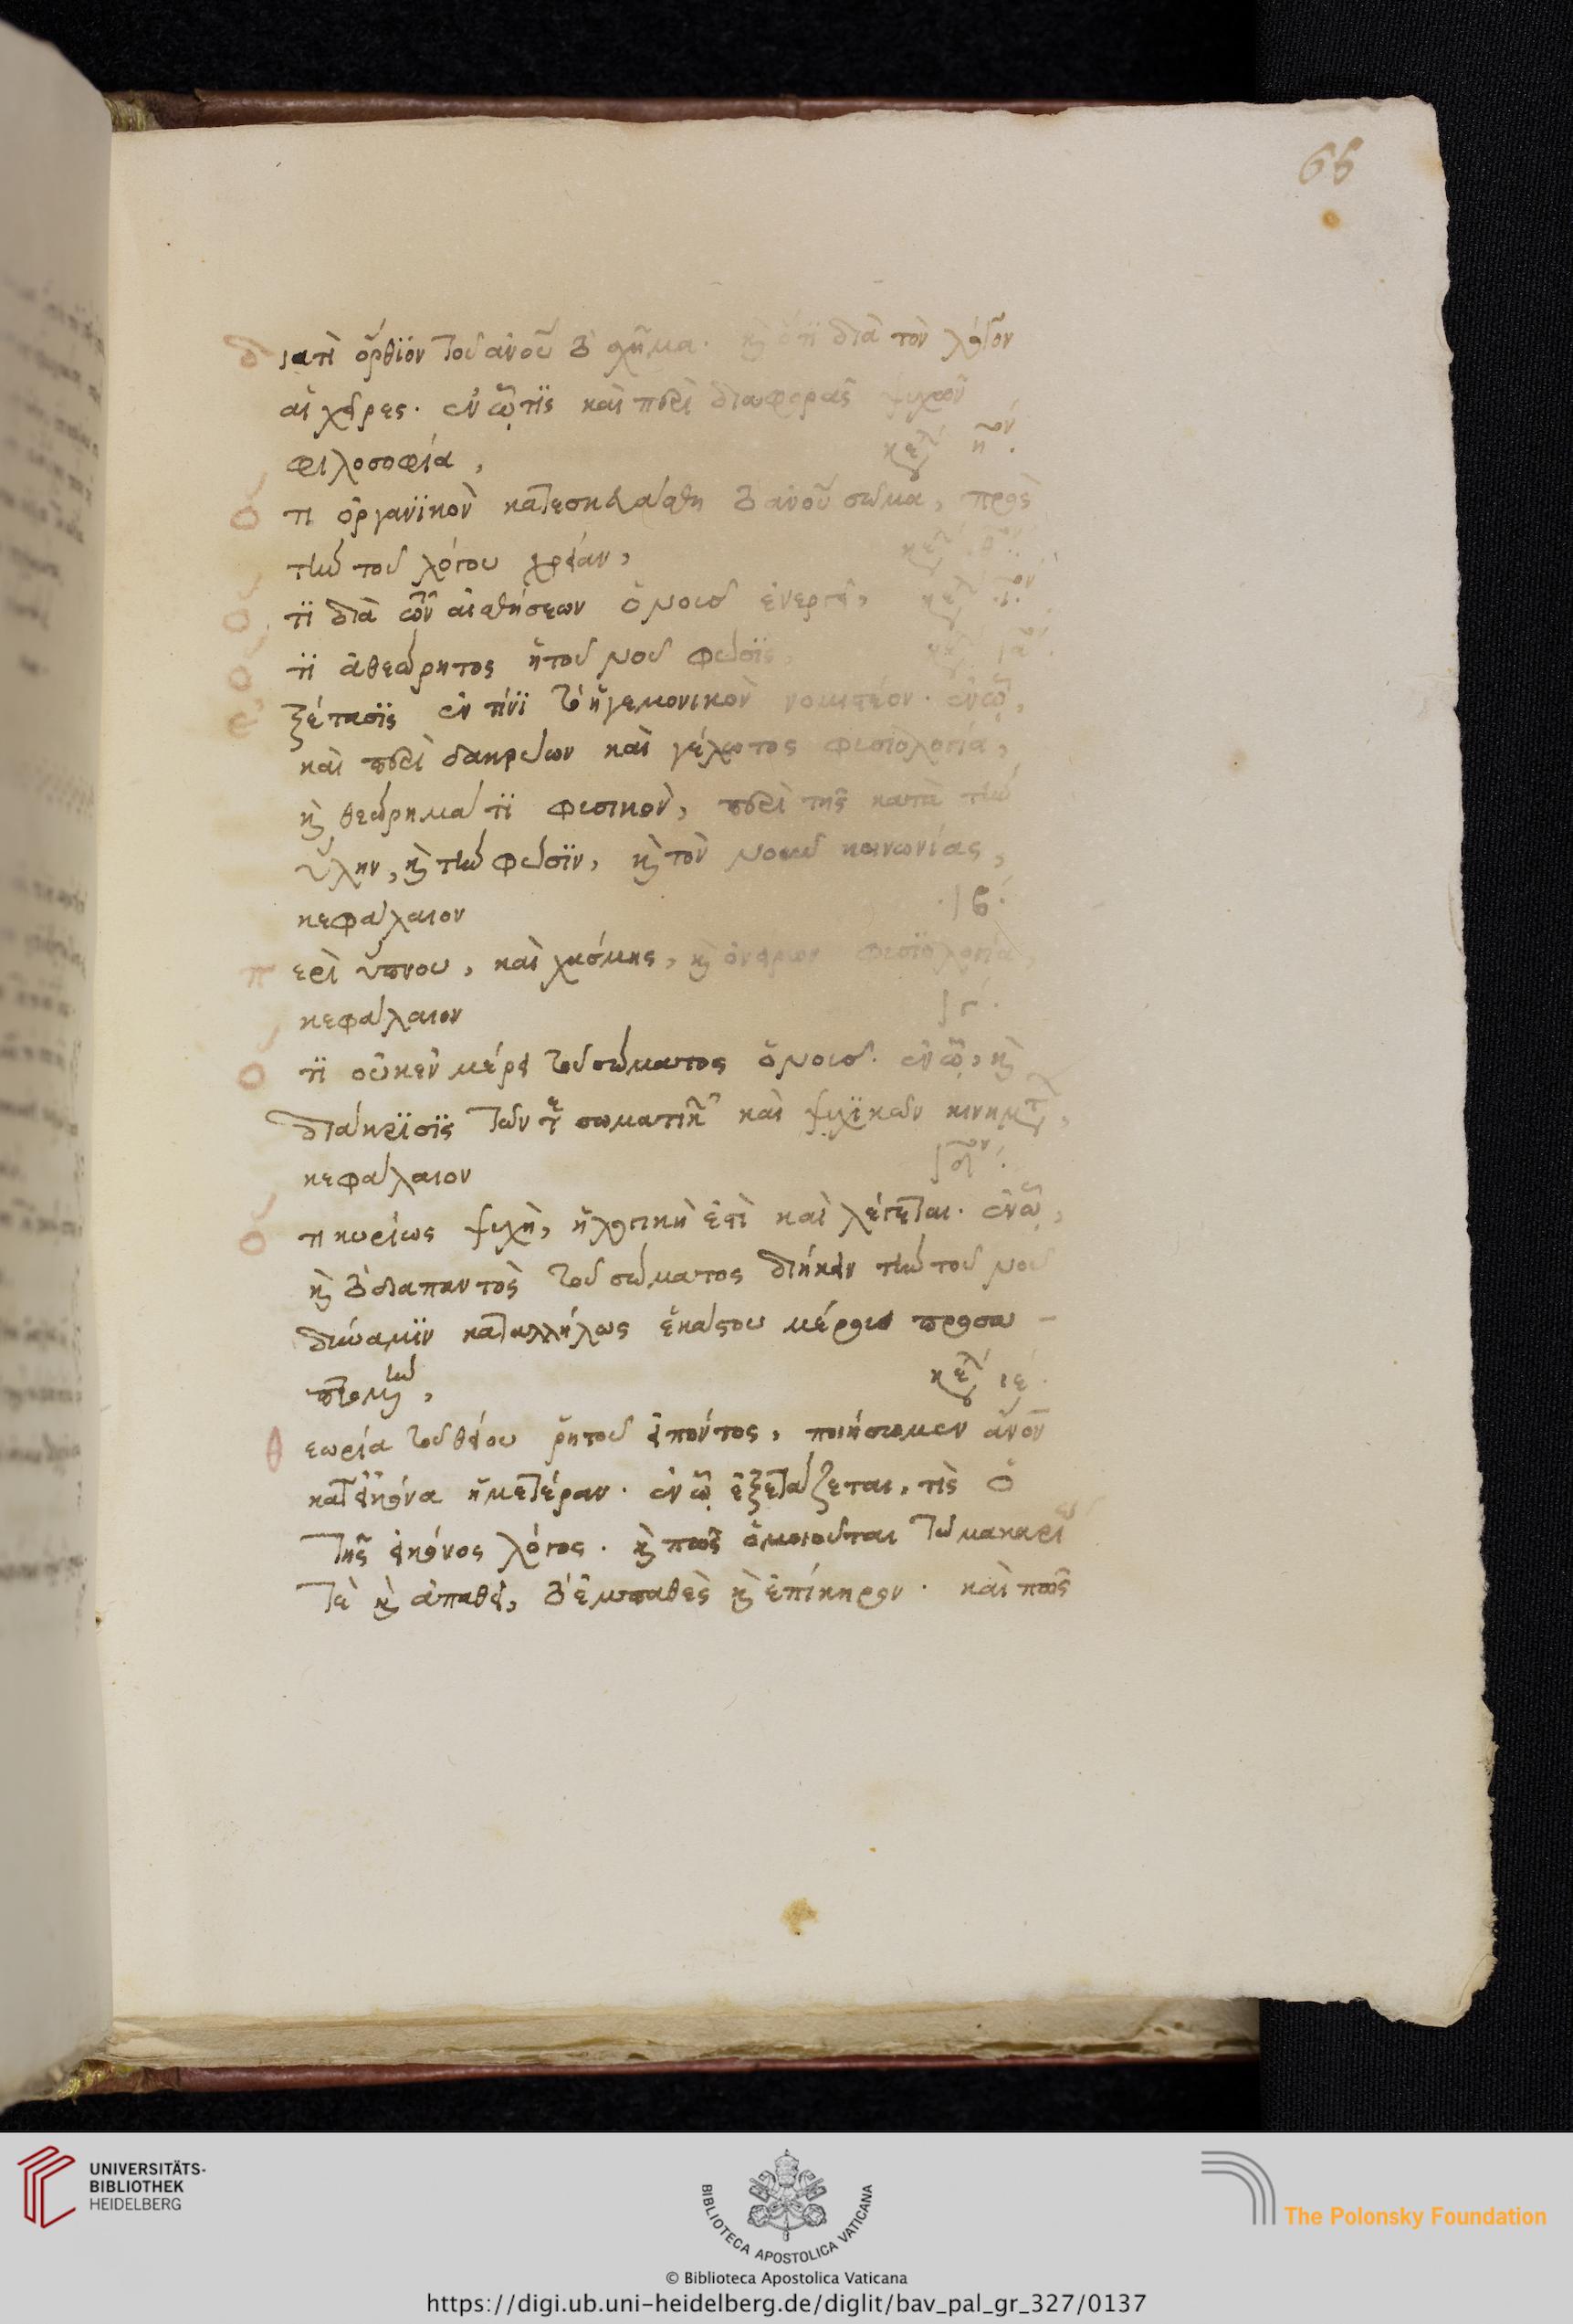 65
διατὶ ὄρθϊον τοῦ ἀνοῦ τὸ σχῆμα. κὶ ὅτϊ διὰ τὸν λόγον
αἱ χεῖρες. ἐν ᾧ τϊς καὶ περὶ διαφορᾶς ψυχῶν
φιλοσοφία, κεφ η̅ον.
ὅτι ὀργανϊκὸν κατεσκευάσθη τὸ ἀνοῦ σῶμα, πρὸς
τὴν τοῦ λόγου χρείαν, κεφ θον.
ὅτϊ διὰ τῶν αἰσθήσεων ὁ νοῦσ ἐνεργεῖ, κεφ ιον
ὅτϊ ἀθεώρητος ἡ τοῦ νοῦ φύσϊς, κεφ ια.
ἐξέτασϊς ἐν τίνϊ τὸ ἡγεμονικὸν νομιστέον. ἐν ᾧ,
καὶ περὶ δακρύων καὶ γέλωτος φυσιολογία,
κὶ θεώρημά τϊ φυσικὸν, περὶ τῆς κατὰ τὴν
ὕλην, κὶ τὴν φύσϊν, κὶ τὸν νοῦν κοινωνίας,
κεφάλαιον ιβ.
περὶ ὕπνου, καὶ χάσμης, κὶ ὀνείρων φυσϊολογία,
κεφάλαιον ιγ.
ὅτϊ οὐκ ἐν μέρει τοῦ σώματος ὁ νοῦσ. ἐν ᾧ, κὶ
διάκρϊσϊς τῶν τε σωματικῶν καὶ ψυχϊκῶν κινημάτ,
κεφάλαιον ιδον.
ὅτι κυρίως ψυχὴ, ἡ λογικὴ ἐστὶ καὶ λέγεται. ἐν ᾧ,
κὶ τὸ διαπαντὸς τοῦ σώματος διήκειν τὴν τοῦ νοῦ
δύναμϊν καταλλήλως ἑκάστου μέρους προσα-
πτομένην, κεφ ιε.
θεωρία τοῦ θείου ῥητοῦ εἰπόντος, ποιήσωμεν ἄνον
κατ εἰκόνα ἡμετέραν. ἐν ᾧ ἐξετάζεται, τίς ὁ
τῆς εἰκόνος λόγος. κὶ πῶς ὁμοιοῦται τῷ μακαρίῳ
τὲ κὶ ἀπαθεῖ, τὸ ἐμπαθὲς κὶ ἐπίκηρον. καὶ πῶς
UNIVERSITÄTS-
BIBLIOTHEK
HEIDELBERG
BIBLIOTECA APOSTOLICA VATICANA
The Polonsky Foundation
© Biblioteca Apostolica Vaticana
https://digi.ub.uni-heidelberg.de/diglit/bav_pal_gr_327/0137